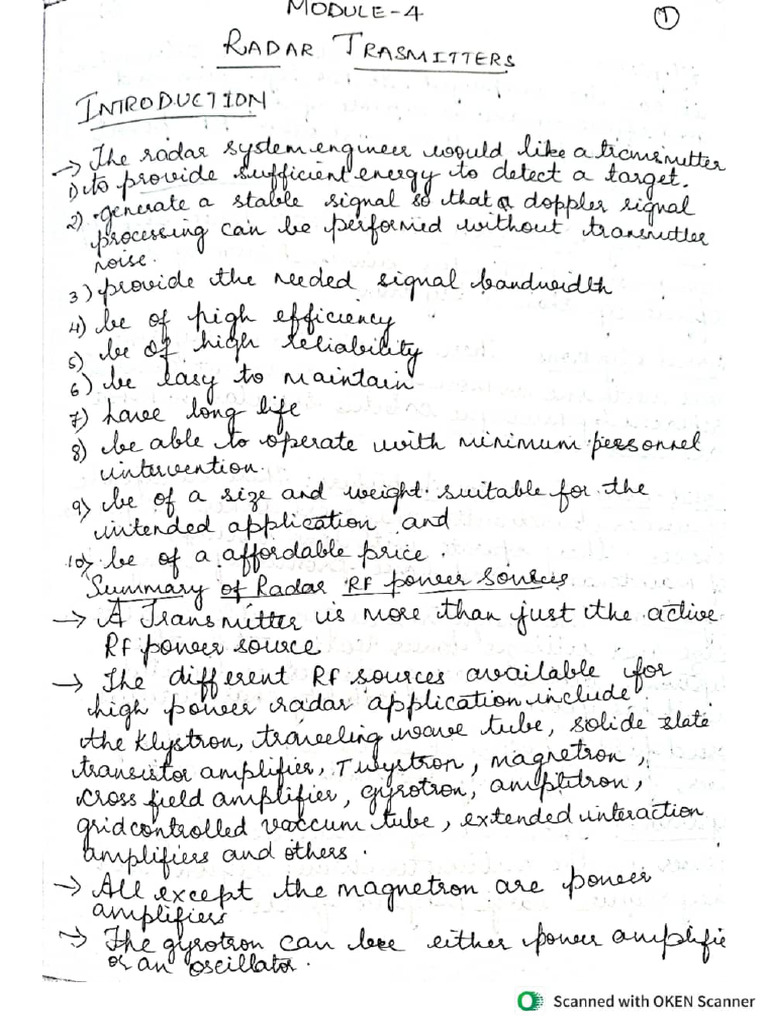 MODULE-4
1
RADAR TRASMITTERS
INTRODUCTION
→ The radar system engineer would like a transmitter
1) to provide sufficient energy to detect a target.
2) generate a stable signal so that a doppler signal
processing can be performed without transmitter
noise.
3) provide the needed signal bandwidth
4) be of high efficiency
5) be of high reliability
6) be easy to maintain
7) have long life
8) be able to operate with minimum personnel
intervention.
9) be of a size and weight suitable for the
intended application and
10) be of a affordable price.
Summary of Radar RF power sources
→ A Transmitter is more than just the active
RF power source
→ The different RF sources available for
high power radar application include
the Klystron, traveling wave tube, solide state
transistor amplifier, Twystron, magnetron,
cross field amplifier, gyrotron, amplitron,
grid controlled vaccum tube, extended interaction
amplifiers and others.
→ All except the magnetron are power
amplifiers
→ The gyrotron can be either power amplifie
or an oscillator.
Scanned with OKEN Scanner